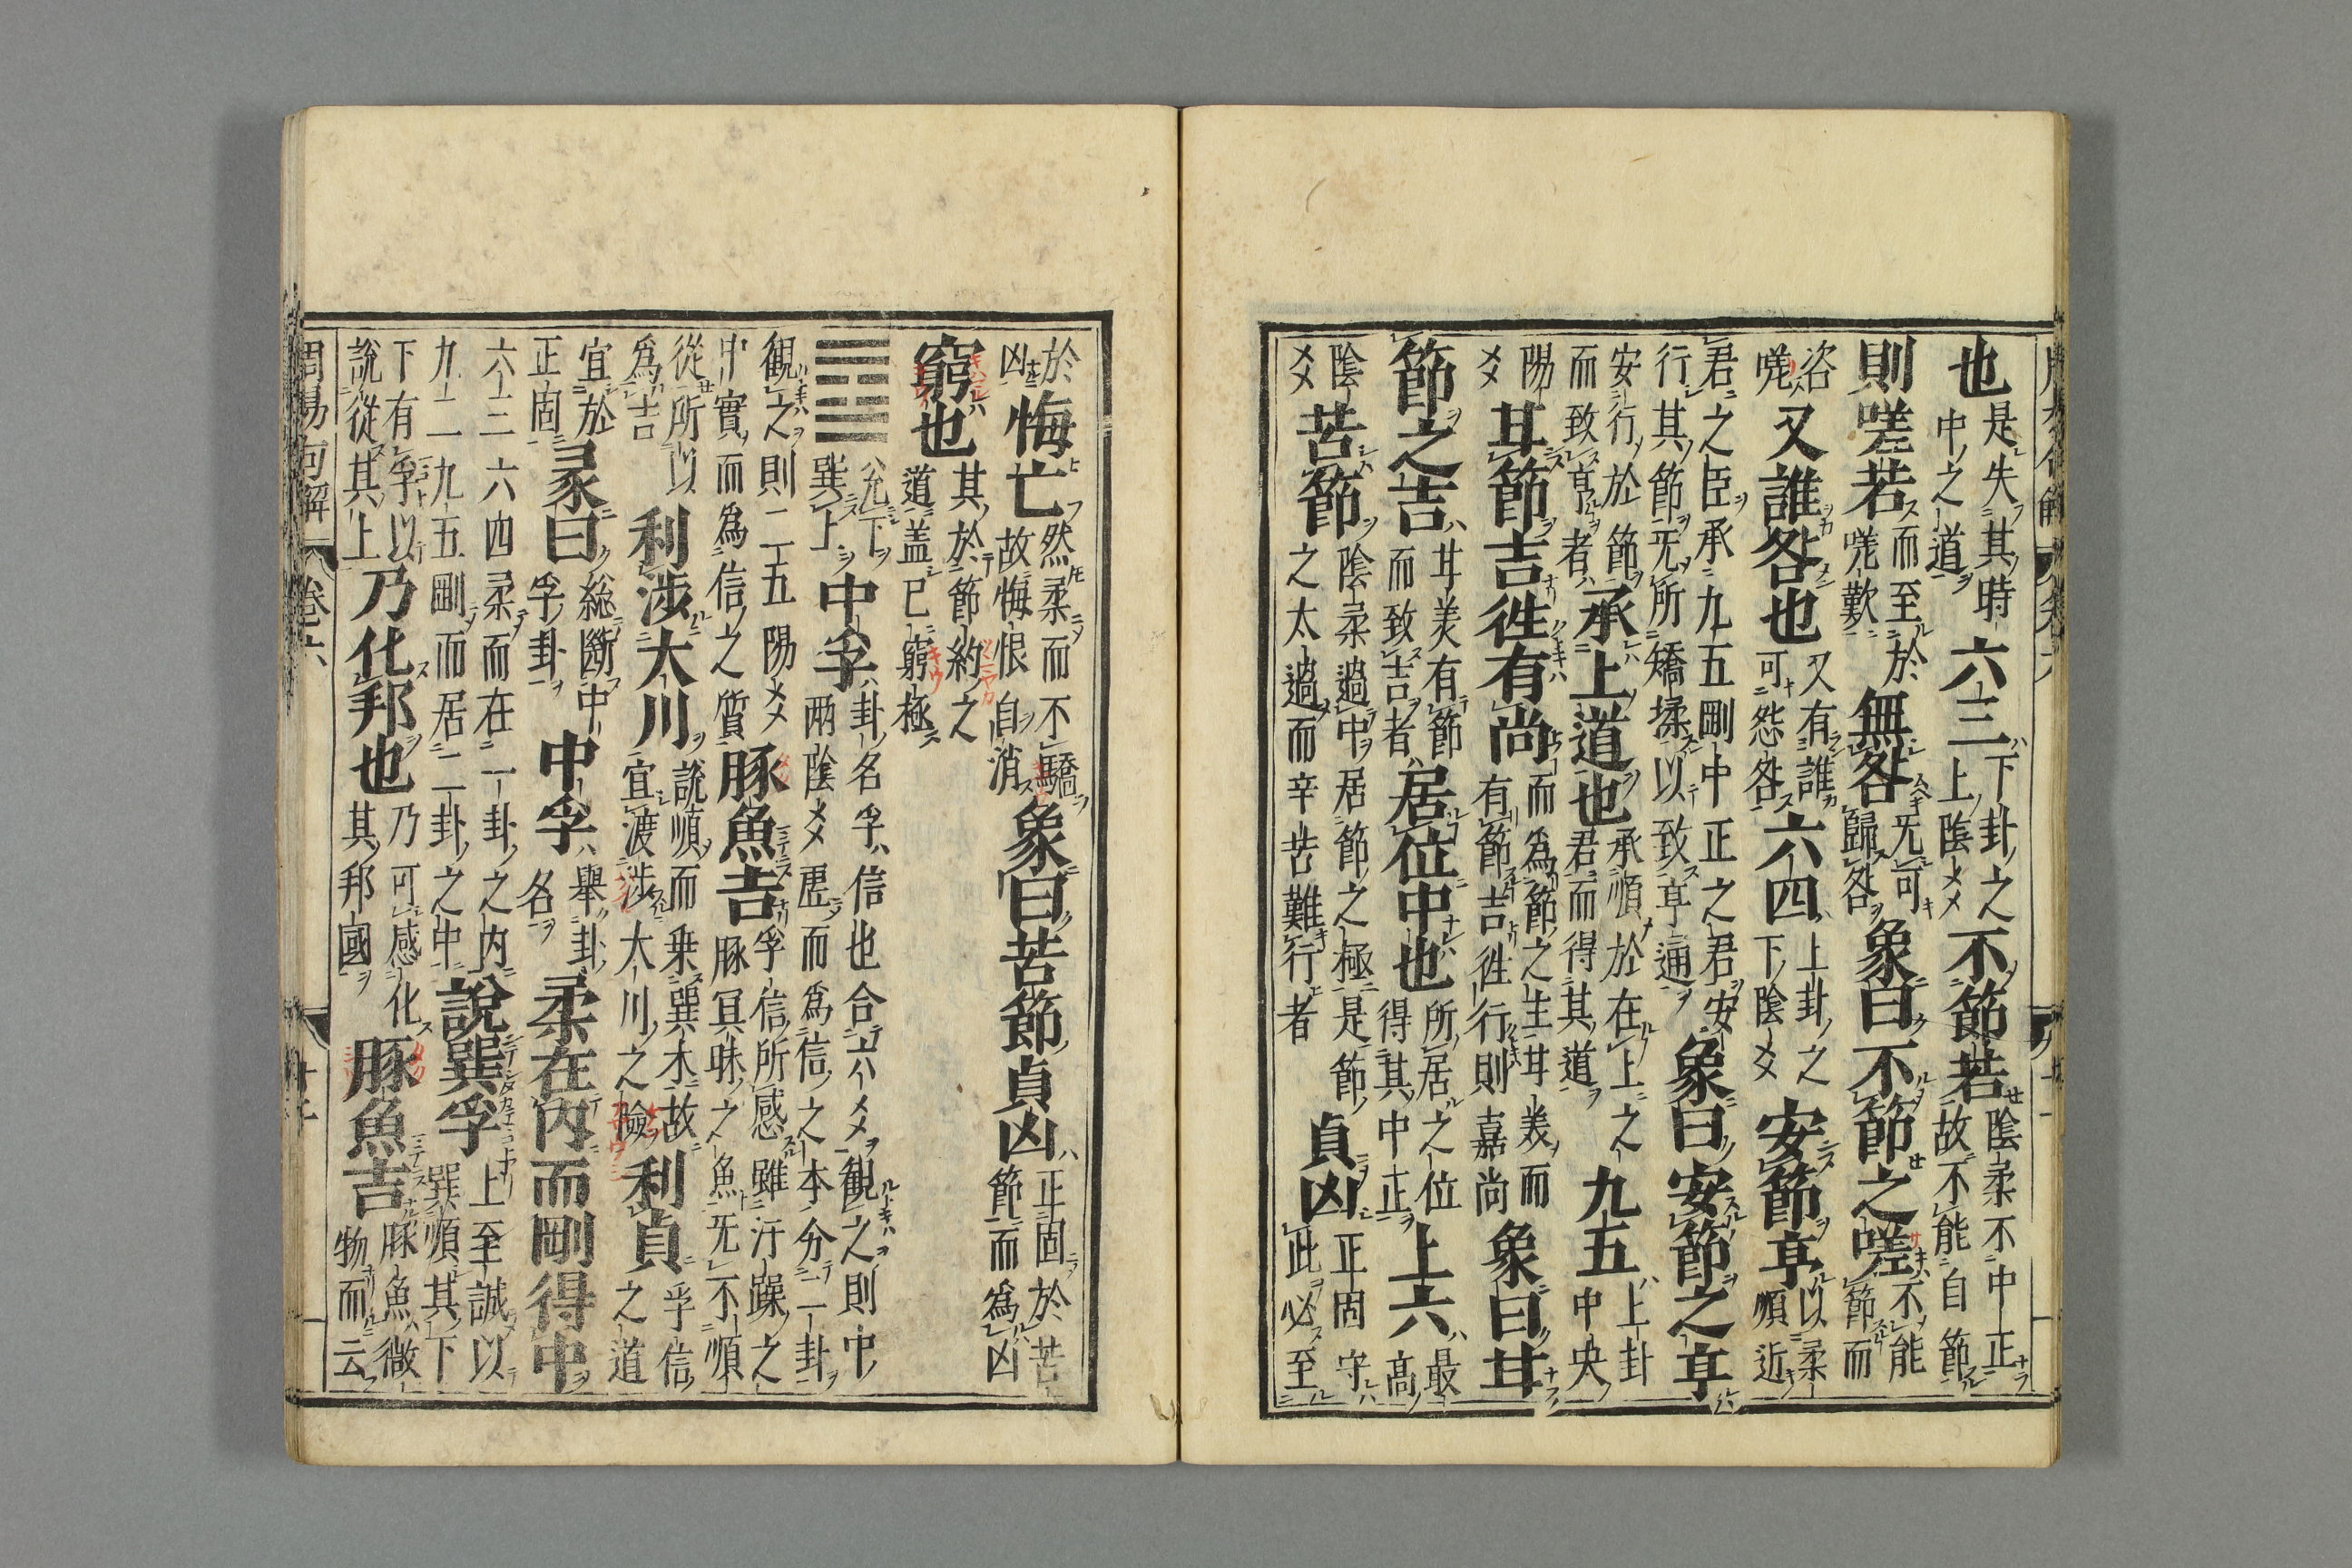 也是失其時中之道六三下卦之上陰爻不節若陰柔不中正故不能自節
則嗟若而至於嗟歎無咎无可歸咎象曰不節之嗟不能節而
咨嗟又誰咎也又有誰可怨咎六四上卦之下陰爻安節亨以柔順近
君之臣承九五剛中正之君安行其節无所矯揉以致亨通象曰安節之亨
安行於節而致亨者承上道也承順於在上之君而得其道九五上卦中央
陽爻甘節吉徃有尚而為節之生甘美而有節吉徃行則嘉尚象曰甘
節之吉甘美有節而致吉者居位中也所居之位得其中正上六最高
陰爻苦節陰柔過中居節之極是節之太過而辛苦難行者貞凶正固守此必至
於凶悔亡然柔而不驕故悔恨自消象曰苦節貞凶正固於苦節而為凶
窮也其於節約之道盖已窮極
䷼兊下巽上中孚卦名孚信也合六爻觀之則中两陰爻虛而為信之本分二卦
觀之則二五陽爻中實而為信之質豚魚吉孚信所感雖汙躁之豚冥昧之魚无不順
從所以為吉利涉大川說順而乗巽木故宜渡涉大川之險利貞孚信之道
宜於正固彖曰緫斷中孚卦中孚舉卦名柔在內而剛得中
六三六四柔而在一卦之內九二九五剛而居二卦之中說巽孚上至誠以巽順其下
下有孚以說從其上乃化邦也乃可感化其邦國豚魚吉豚魚微物而云
周易句解 卷六